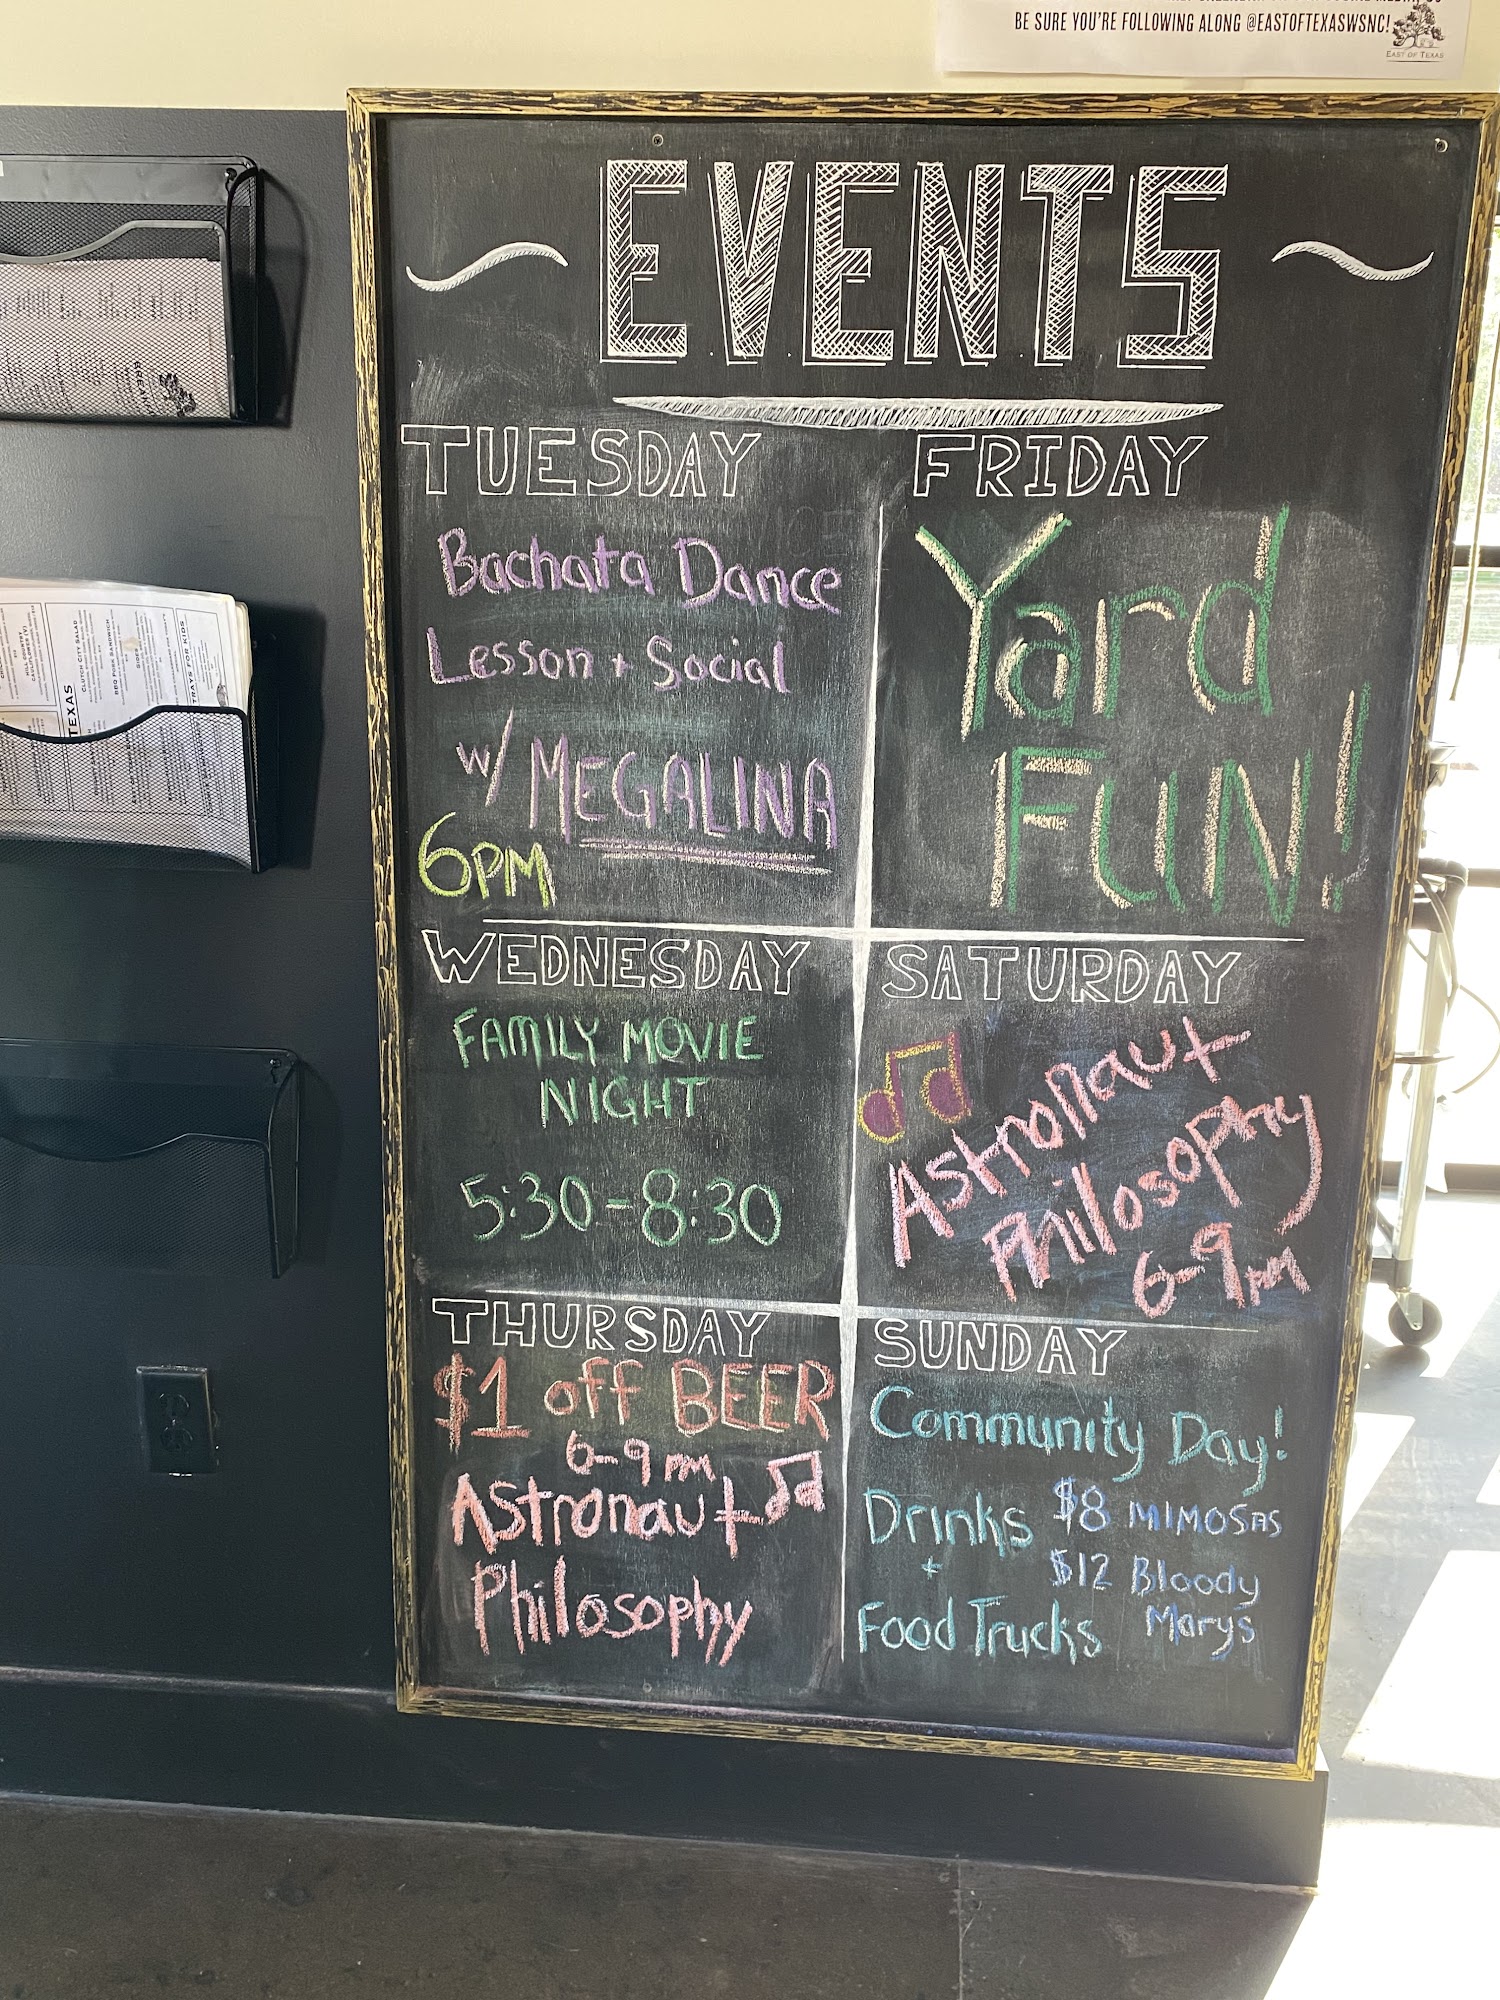 BE SURE YOU'RE FOLLOWING ALONG @EASTOFTEXASWSNC!
EAST OF TEXAS
EVENTS
TUESDAY
Bachata Dance
Lesson + Social
w/ MEGALINA
6PM
WEDNESDAY
FAMILY MOVIE
NIGHT
5:30-8:30
THURSDAY
$1 off BEER
6-9 PM
Astronaut
Philosophy
FRIDAY
Yard
FUN!
SATURDAY
Astronaut
Philosophy
6-9PM
SUNDAY
Community Day!
Drinks $8 MIMOSAS
+ $12 Bloody
Food Trucks Marys
TEXAS
CLUTCH CITY SALAD
BBQ PORK SANDWICH
TRAYS FOR KIDS
HILL COUNTRY
CAULIFLOWER (V)